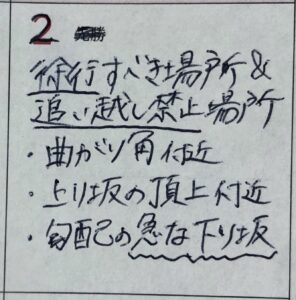 2
徐行すべき場所&
追い越し禁止場所
・曲がり角付近
・上り坂の頂上付近
・勾配の急な下り坂